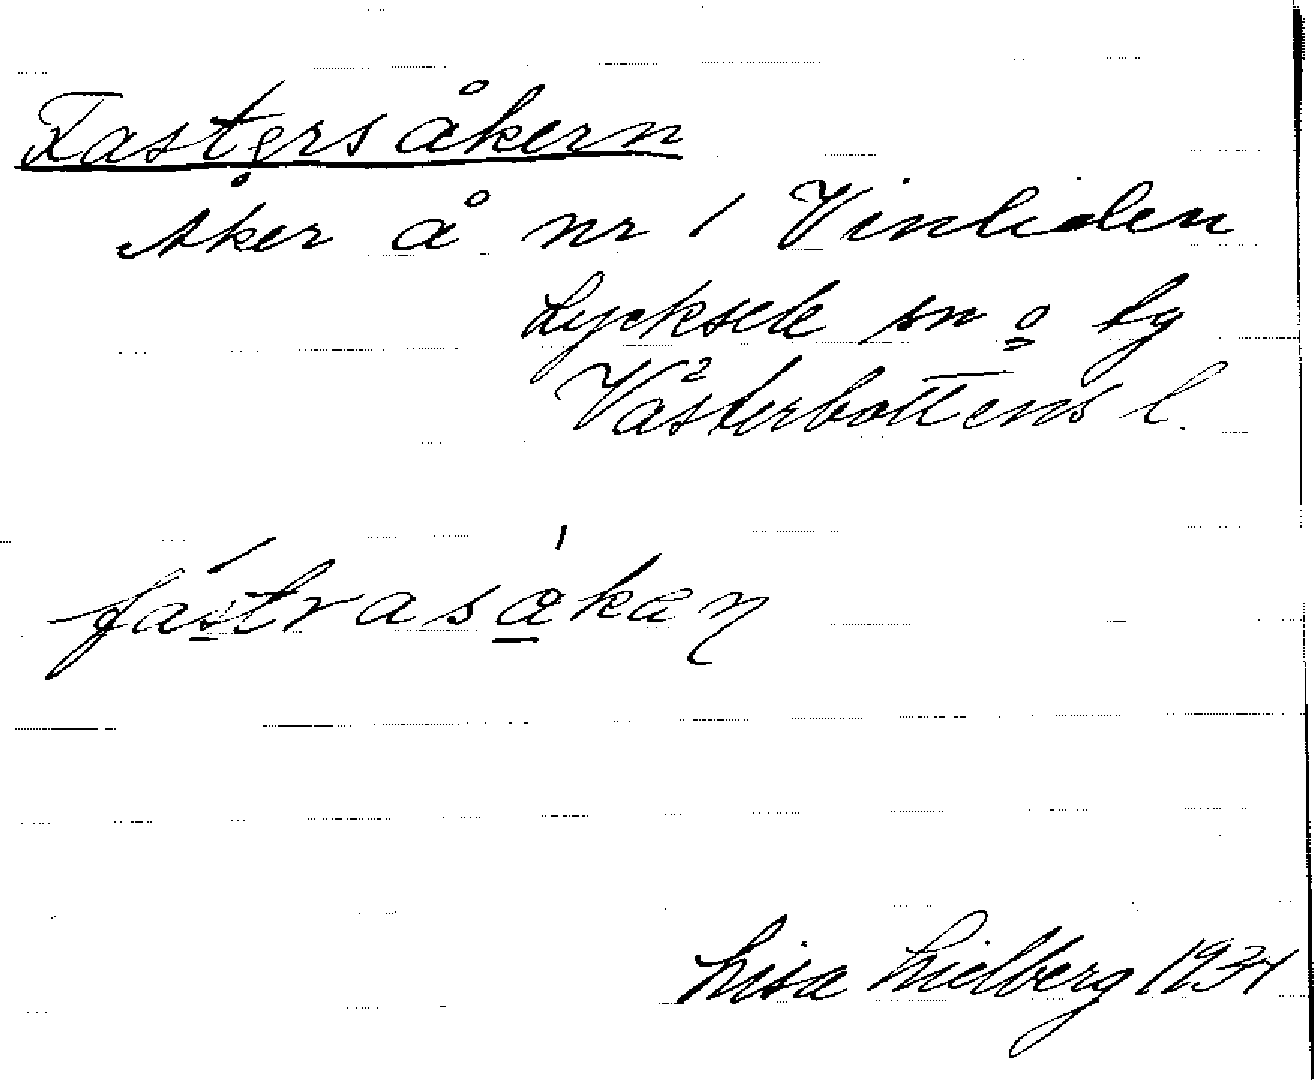 Fastersåkern
Åker å nr 1 Vinliden
Lycksele sn o lg
Västerbottens l.
fástrasåkæn
Lisa Lidberg 1934